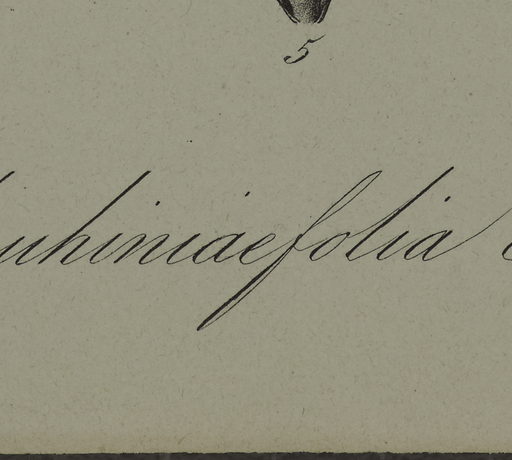 5
uhiniaefolia